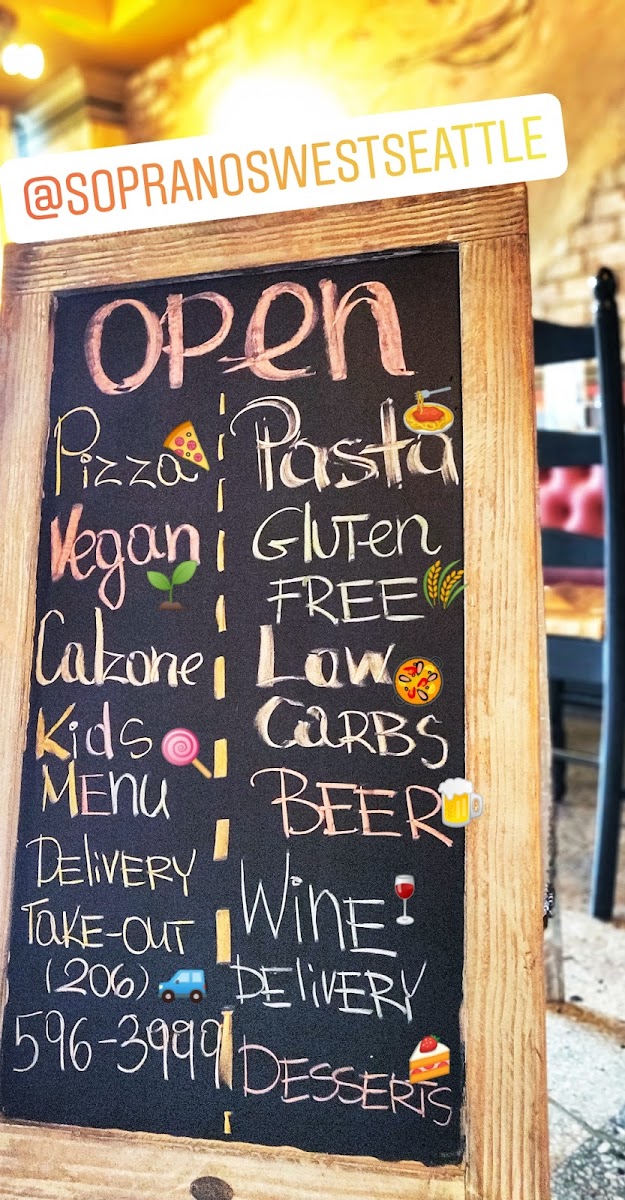 @SOPRANOSWESTSEATTLE
OPen
Pizza
Vegan
Calzone
Kids
MEnu
DEliVERY
TAKE-OUT
(206)
596-3999
Pasta
GluTen
FREE
Low
CARBS
BEER
WinE
DEliVERY
DESSERTS